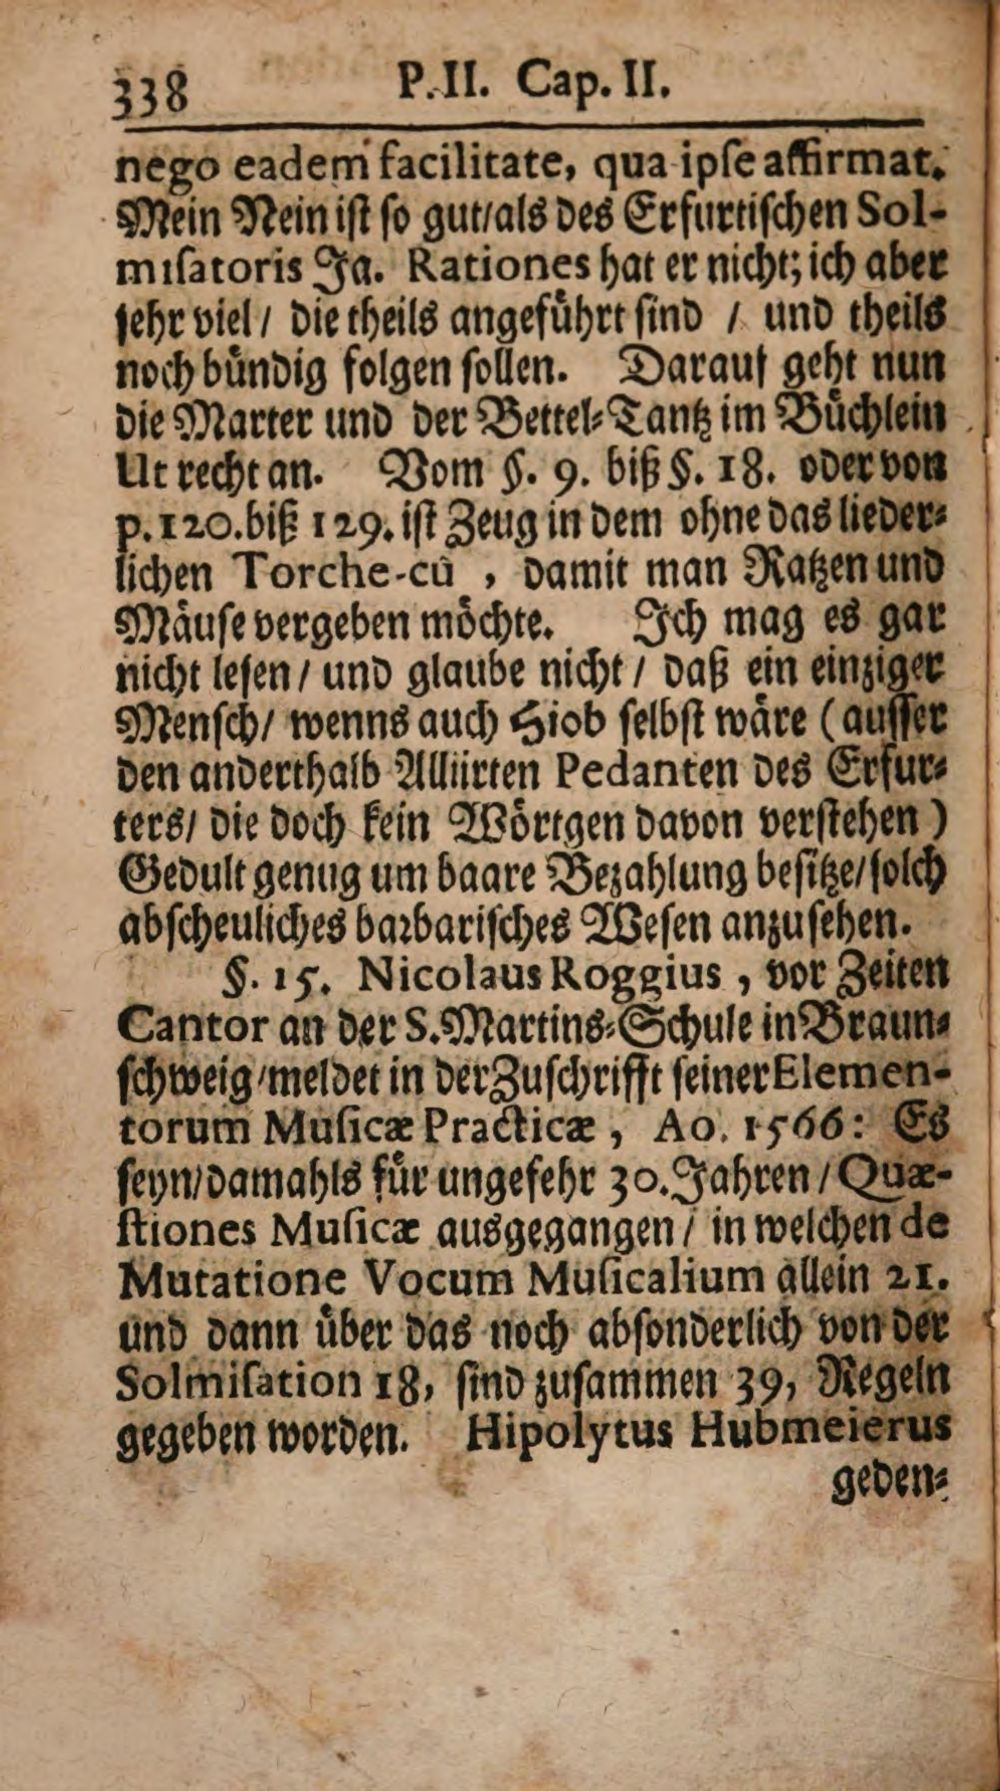 338 P. II. Cap. II.
nego eadem facilitate, qua ipſe affirmat.
Mein Nein iſt ſo gut/als des Erfurtiſchen Sol-
miſatoris Ja. Rationes hat er nicht; ich aber
ſehr viel / die theils angefuͤhrt ſind / und theils
noch buͤndig folgen ſollen. Darauf geht nun
die Marter und der Bettel-Tantz im Buͤchlein
Ut recht an. Vom §. 9. biß §. 18. oder von
p. 120. biß 129. iſt Zeug in dem ohne das lieder-
lichen Torche-cû, damit man Ratzen und
Maͤuſe vergeben moͤchte. Ich mag es gar
nicht leſen / und glaube nicht / daß ein einziger
Menſch/ wenns auch Hiob ſelbſt waͤre (auſſer
den anderthalb Alliirten Pedanten des Erfur-
ters/ die doch kein Woͤrtgen davon verſtehen)
Gedult genug um baare Bezahlung beſitze/ſolch
abſcheuliches barbariſches Weſen anzuſehen.
§. 15. Nicolaus Roggius, vor Zeiten
Cantor an der S. Martins-Schule in Braun-
ſchweig/meldet in der Zuſchrifft ſeiner Elemen-
torum Muſicæ Practicæ, Ao. 1566: Es
ſeyn/damahls fuͤr ungefehr 30. Jahren / Quæ-
ſtiones Muſicæ ausgegangen / in welchen de
Mutatione Vocum Muſicalium allein 21.
und dann uͤber das noch abſonderlich von der
Solmiſation 18, ſind zuſammen 39, Regeln
gegeben worden. Hipolytus Hubmeierus
geden-